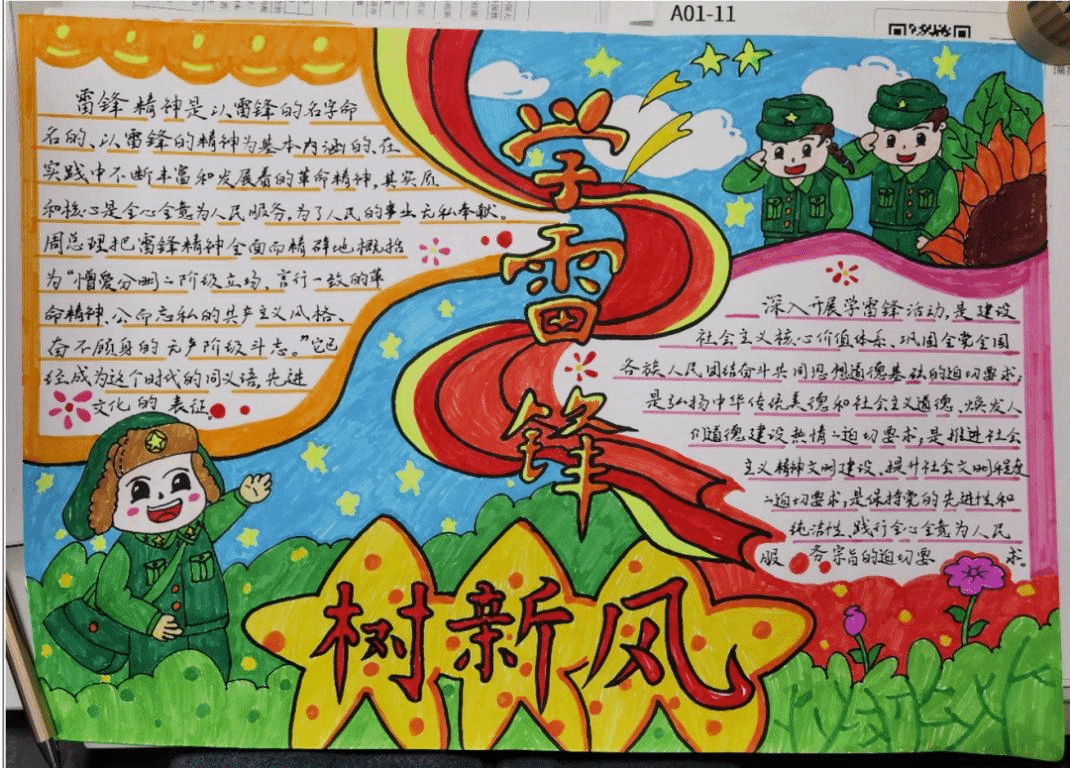 A01-11
学雷锋
雷锋精神是以雷锋的名字命
名的、以雷锋的精神为基本内涵的、在
实践中不断丰富和发展着的革命精神,其实质
和核心是全心全意为人民服务,为了人民的事业无私奉献。
周总理把雷锋精神全面而精辟地概括
为“憎爱分明的阶级立场、言行一致的革
命精神、公而忘私的共产主义风格、
奋不顾身的无产阶级斗志。”它已
经成为这个时代的同义语,先进
文化的表征。
深入开展学雷锋活动,是建设
社会主义核心价值体系、巩固全党全国
各族人民团结奋斗共同思想道德基础的迫切要求;
是弘扬中华传统美德和社会主义道德、焕发人
们道德建设热情的迫切要求;是推进社会
主义精神文明建设、提升社会文明程度
的迫切要求;是保持党的先进性和
纯洁性、践行全心全意为人民
服务宗旨的迫切要求。
树新风